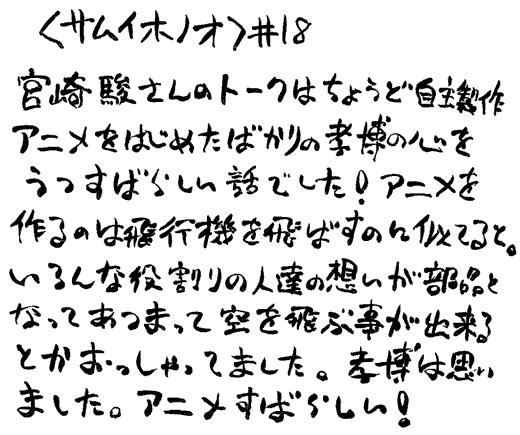 〈サムイホノオ〉#18
宮崎駿さんのトークはちょうど自主製作
アニメをはじめたばかりの孝博の心を
うつすばらしい話でした！アニメを
作るのは飛行機を飛ばすのに似てると。
いろんな役割りの人達の想いが部品と
なってあつまって空を飛ぶ事が出来る
とかおっしゃってました。孝博は思い
ました。アニメすばらしい！